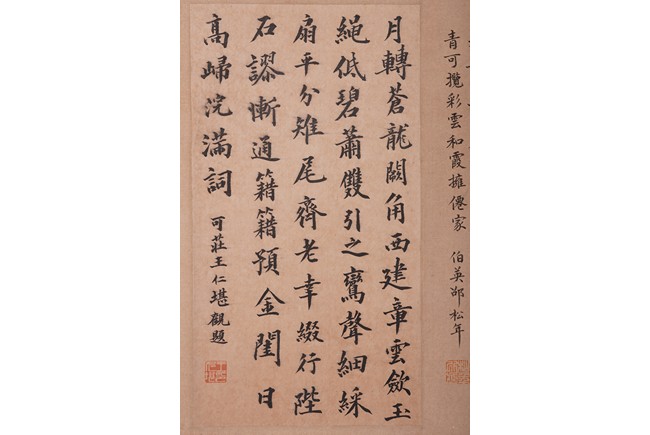 青可攬彩雲和霞擁僊家 伯英邵松年
月轉蒼龍闕角西建章雲歛玉
繩低碧蕭雙引之鸞聲細綵
扇平分雉尾齊老幸綴行陛
石謬慚通籍籍預金閨日
高歸浣滿詞 可莊王仁堪觀題